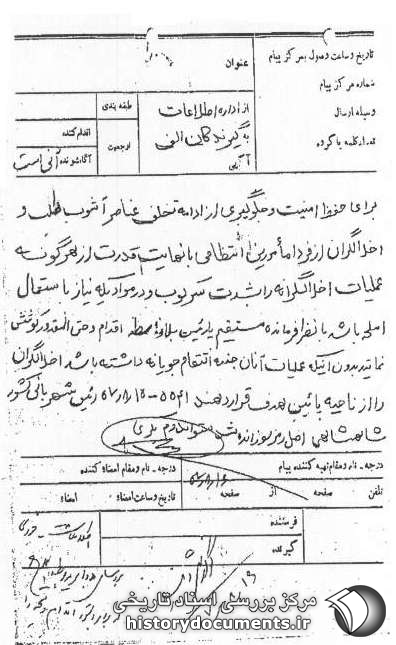 تاریخ و ساعت وصول بمرکز پیام
شماره مرکز پیام
وسیله ارسال
تعداد کلمه یا گروه
عنوان
از اداره اطلاعات
به گیرندگان الف
طبقه بندی
ارجحیت
اقدام کننده
آگاه شونده آنی است
برای حفظ امنیت و جلوگیری از ادامه تخلف عناصر آشوب طلب و
اخلالگران از فردا مأمورین انتظامی با نهایت قدرت از هرگونه
عملیات اخلالگرانه را شدت سرکوب و در مواردیکه نیاز باستعمال
اسلحه باشد با نظر فرمانده مستقیم یا رئیس اقدام و حتی المقدور کوشش
نمایند بدون اینکه عملیات آنان جنبه انتقام جویانه داشته باشد اخلالگران
را از ناحیه پائین هدف قرار دهند رئیس شهربانی کشور
شاهنشاهی اصل رمز سوزانده شد
درجه - نام و مقام تهیه کننده پیام
درجه - نام و مقام امضاء کننده
تلفن صفحه از صفحه
تاریخ و ساعت امضاء امضاء
فرستنده
گیرنده
مرکز بررسی اسناد تاریخی
historydocuments.ir